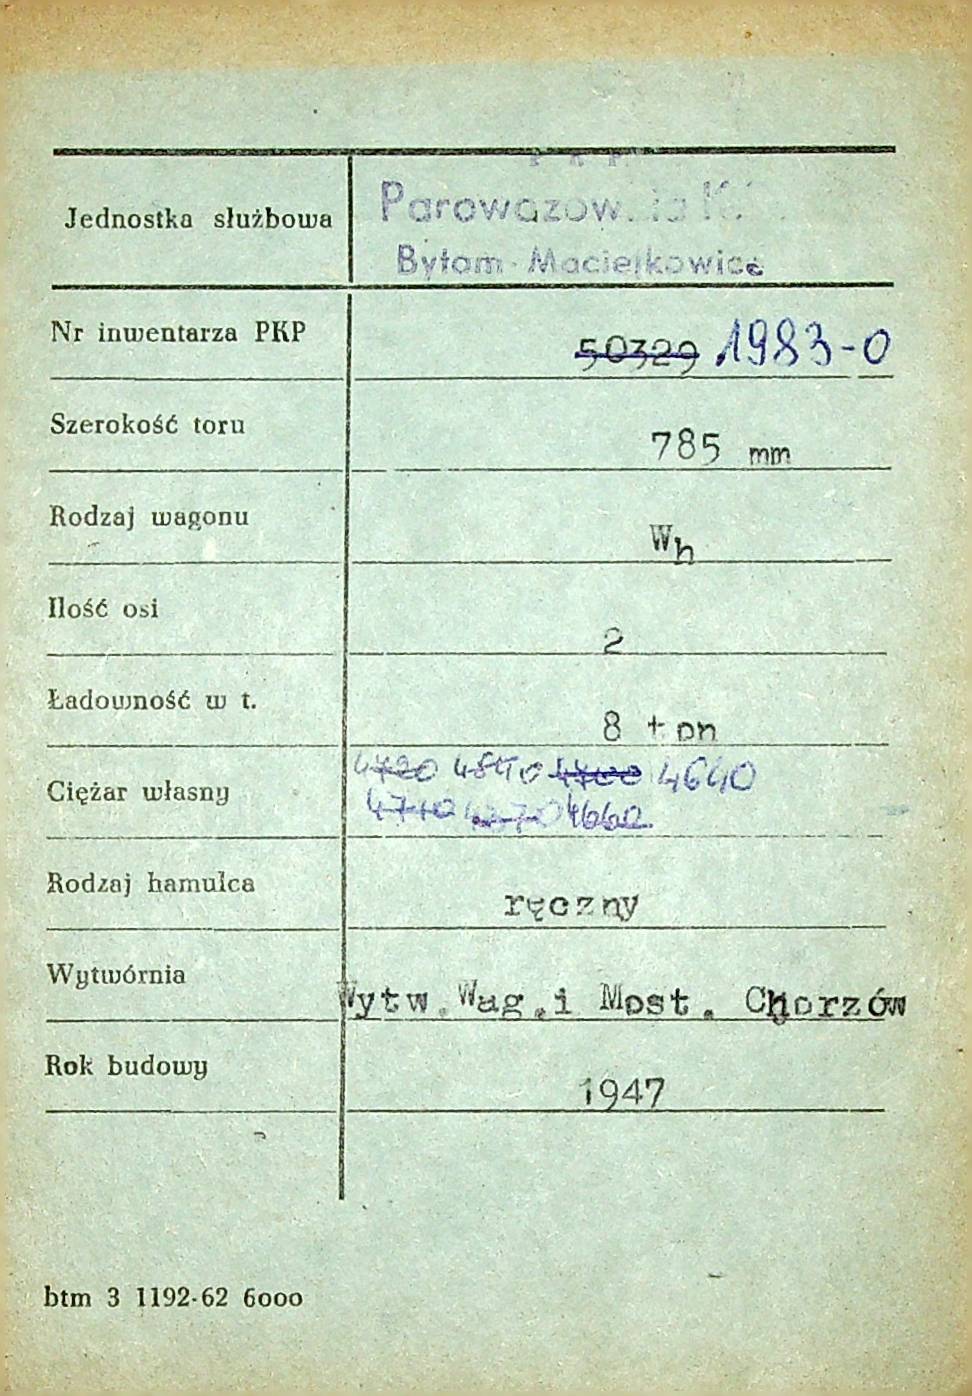 P K P
Jednostka służbowa
Parowozow
Bytom - Maciejkowice
Nr inwentarza PKP 50329 1983-0
Szerokość toru 785 mm
Rodzaj wagonu Wh
Ilość osi 2
Ładowność w t. 8 ton
4720 4840 4700 4640
Ciężar własny
4710 4660
Rodzaj hamulca ręczny
Wytwórnia Wytw.Wag.i Most. Chorzów
Rok budowy 1947
btm 3 1192-62 6000